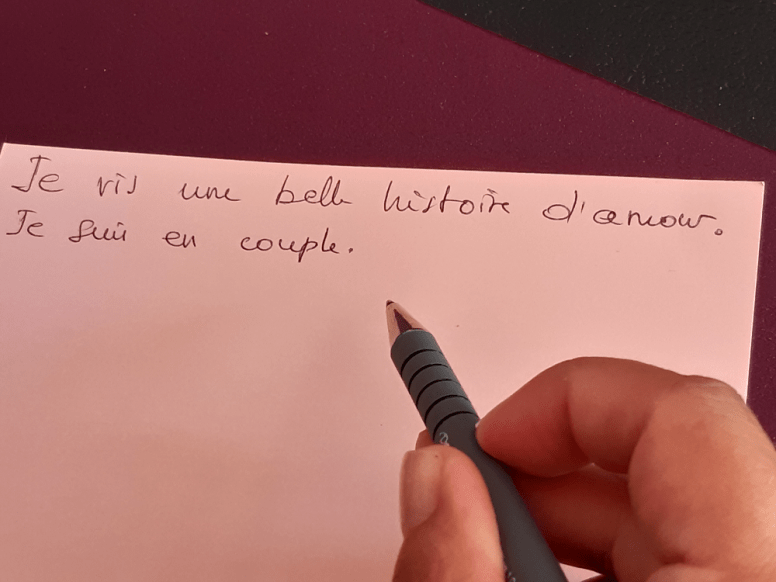 Je vis une belle histoire d'amour.
Je suis en couple.